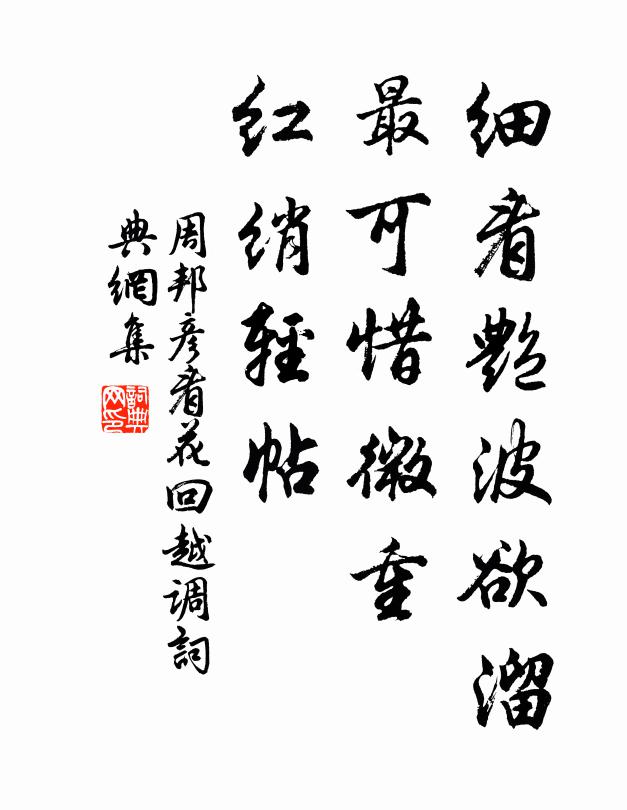 细看艷波欲溜
最可惜微重
红绡輕帖
周邦彦看花回越调詞
典網集
詞典
网印